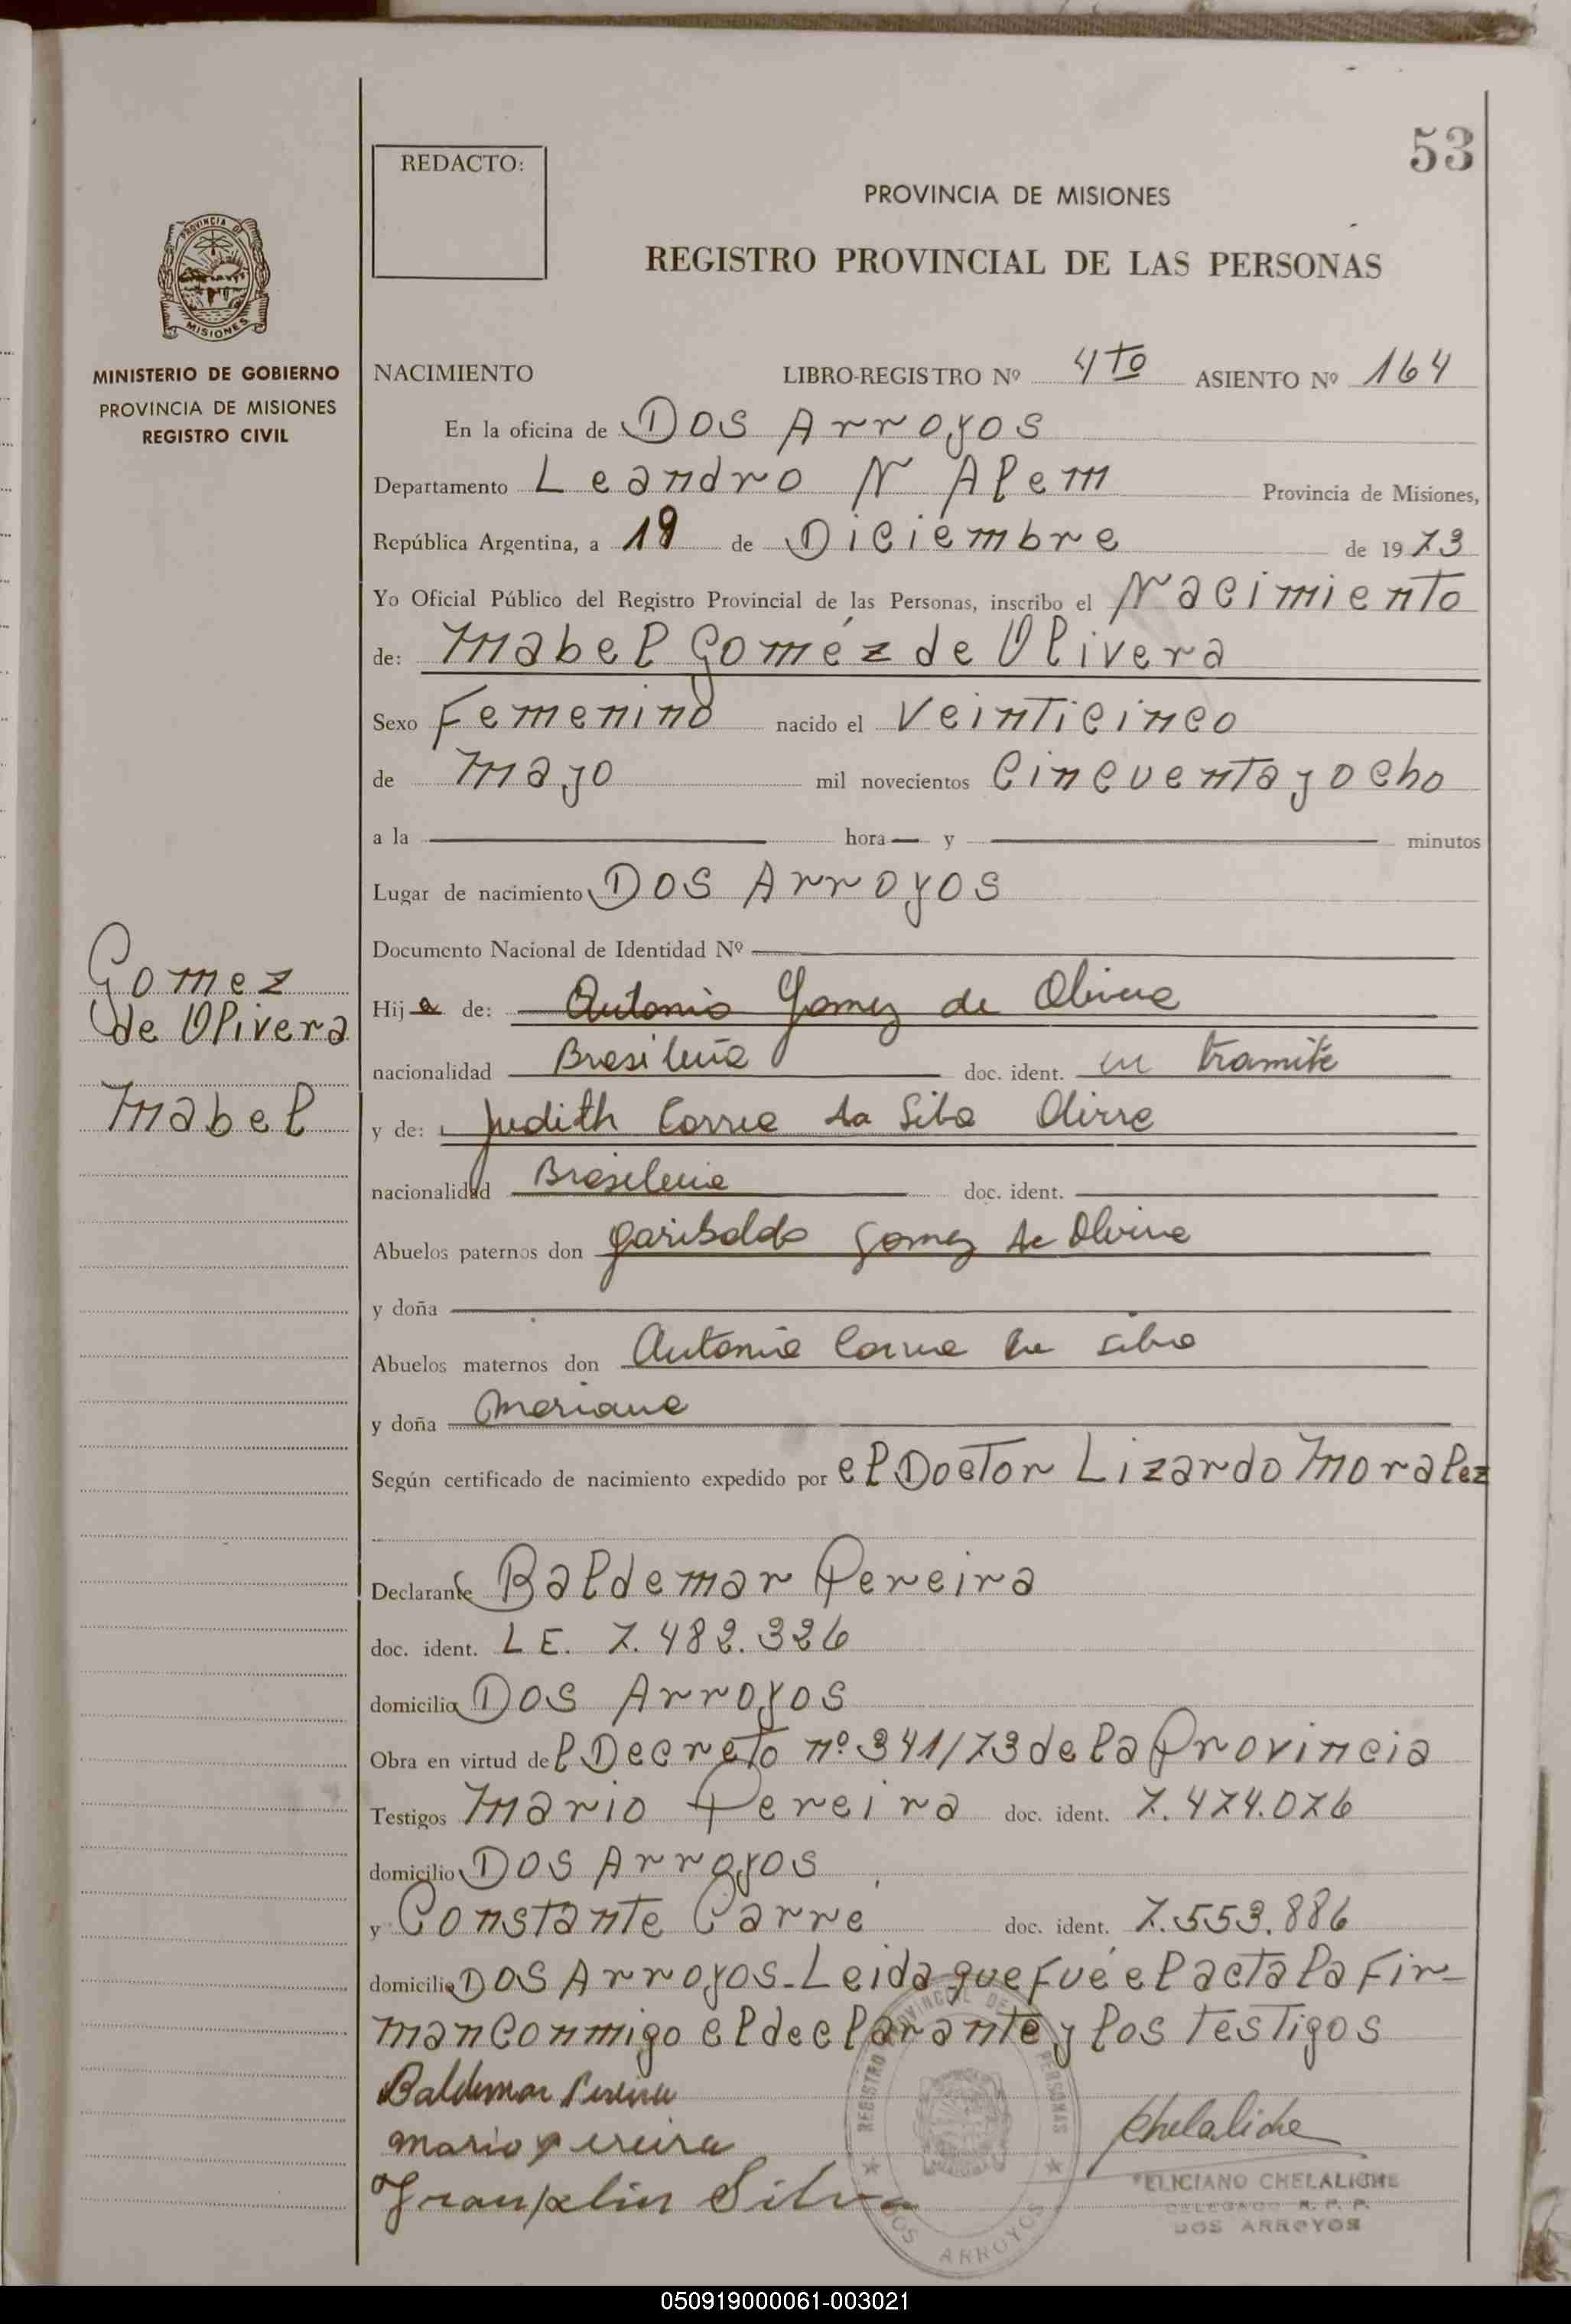 53
REDACTO:
PROVINCIA DE MISIONES
REGISTRO PROVINCIAL DE LAS PERSONAS
PROVINCIA DE
MISIONES
MINISTERIO DE GOBIERNO
PROVINCIA DE MISIONES
REGISTRO CIVIL
NACIMIENTO LIBRO-REGISTRO Nº 4to ASIENTO Nº 164
En la oficina de Dos Arroyos
Departamento Leandro N Alem Provincia de Misiones,
República Argentina, a 19 de Diciembre de 1973
Yo Oficial Público del Registro Provincial de las Personas, inscribo el Nacimiento
de: Mabel Goméz de Olivera
Sexo Femenino nacido el Veinticinco
de Mayo mil novecientos Cincuenta y ocho
a la hora y minutos
Lugar de nacimiento Dos Arroyos
Documento Nacional de Identidad Nº
Gomez
de Olivera
Mabel
Hija de: Antonio Gomez de
nacionalidad Brasileña doc. ident. en tramite
y de: Judith da
nacionalidad Brasileña doc. ident.
Abuelos paternos don Garibaldo Gomez de
y doña
Abuelos maternos don
y doña Mariana
Según certificado de nacimiento expedido por el Doctor Lizardo Moralez
Declarante Baldemar Pereira
doc. ident. L E. 7.482.326
domicilio Dos Arroyos
Obra en virtud del Decreto nº 341/73 de la Provincia
Testigos Mario Pereira doc. ident. 7.474.076
domicilio Dos Arroyos
y Constante Carré doc. ident. 7.553.886
domicilio Dos Arroyos-Leida que fué el acta la fir-
man conmigo el declarante y los testigos
Baldemar Pereira
Mario Pereira
Silva
REGISTRO PROVINCIAL DE PERSONAS
DOS ARROYOS
Chelaliche
FELICIANO CHELALICHE
DELEGADO R. P. P.
DOS ARROYOS
050919000061-003021